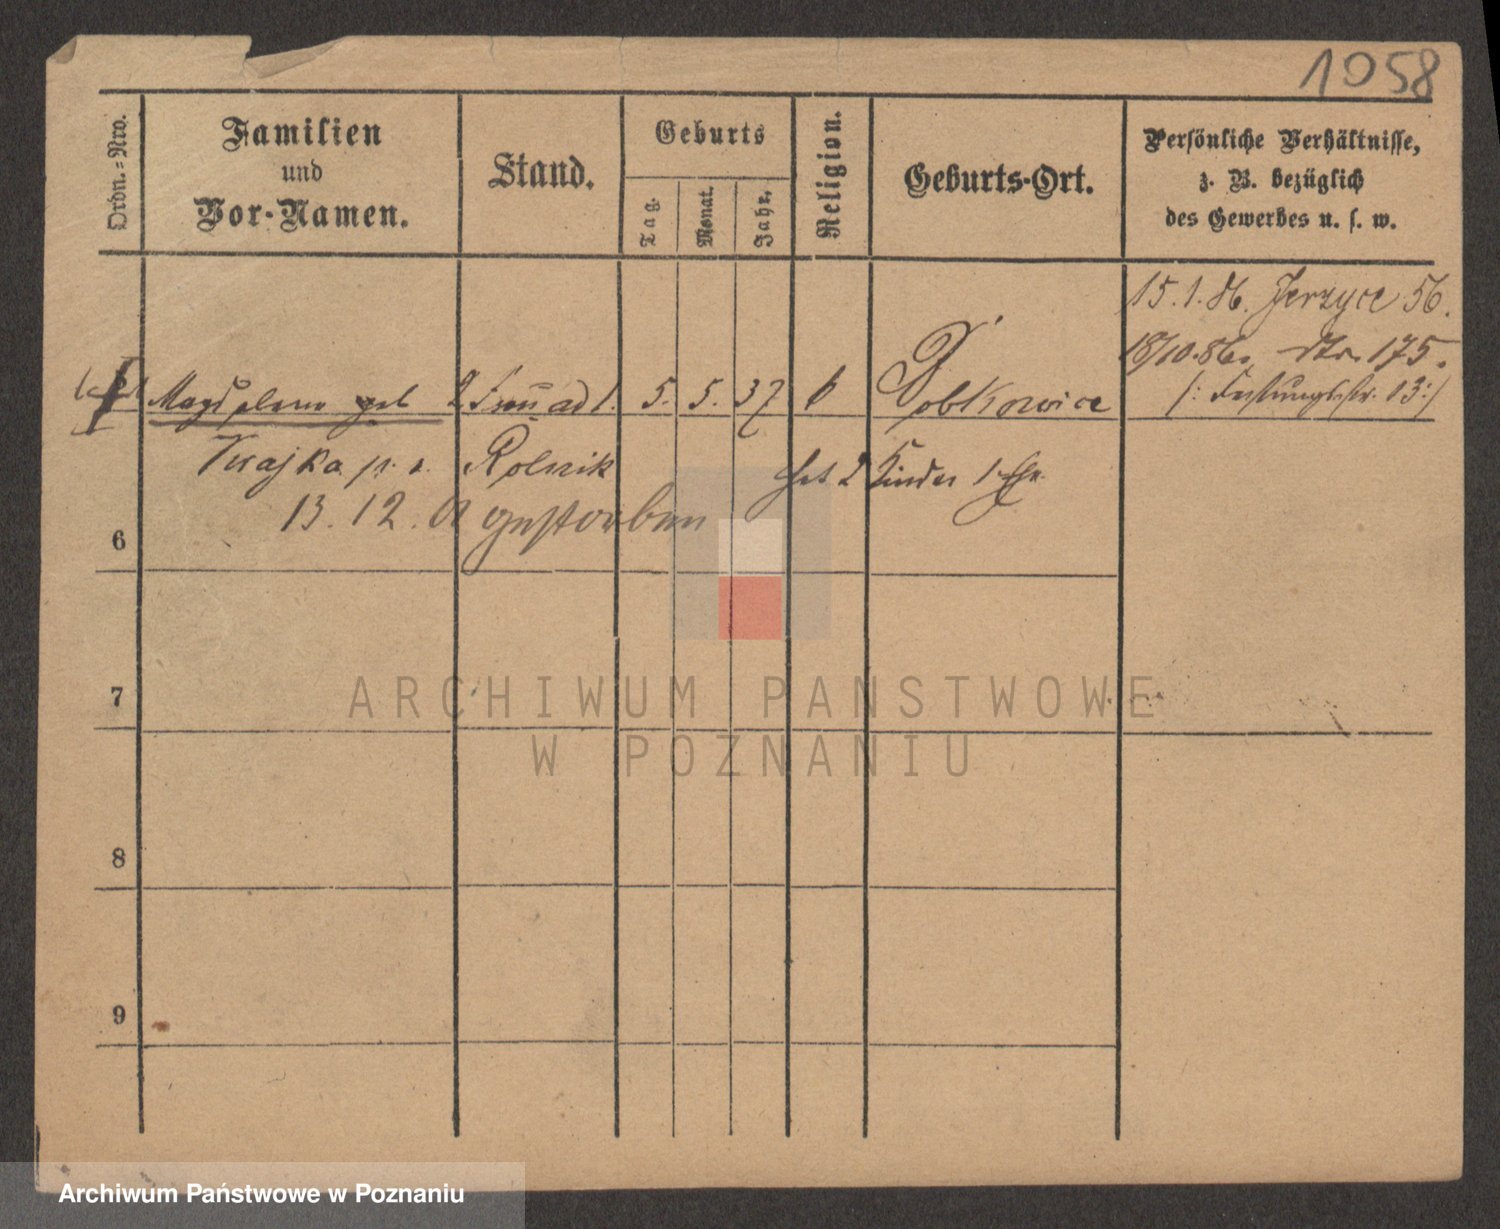 1058
Ordn.=Nro.
Familien
und
Vor-Namen.
Stand.
Geburts
Tag.
Monat.
Jahr.
Religion.
Geburts-Ort.
Persönliche Verhältnisse,
z. B. bezüglich
des Gewerbes u. s. w.
15. 1. 86. Jerzyce 56.
18/10. 86. dto. 175.
Magdalena geb 2 Frau ad 1. 5. 5. 37 k Dobkowice
/: Festungsstr. 13 :/
Krajka Rolnik hat 2 Kinder 1.
13. 12. gestorben
6
7
8
9
ARCHIWUM PAŃSTWOWE
W POZNANIU
Archiwum Państwowe w Poznaniu